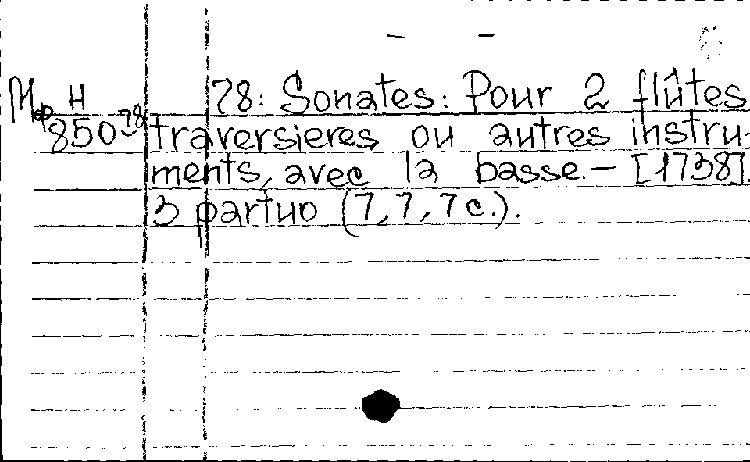 — —
Мф Н 850 78
78: Sonates: Pour 2 flûtes
traversieres ou autres instru-
ments, avec la basse. — [1738].
3 partuo (7, 7, 7 c.).